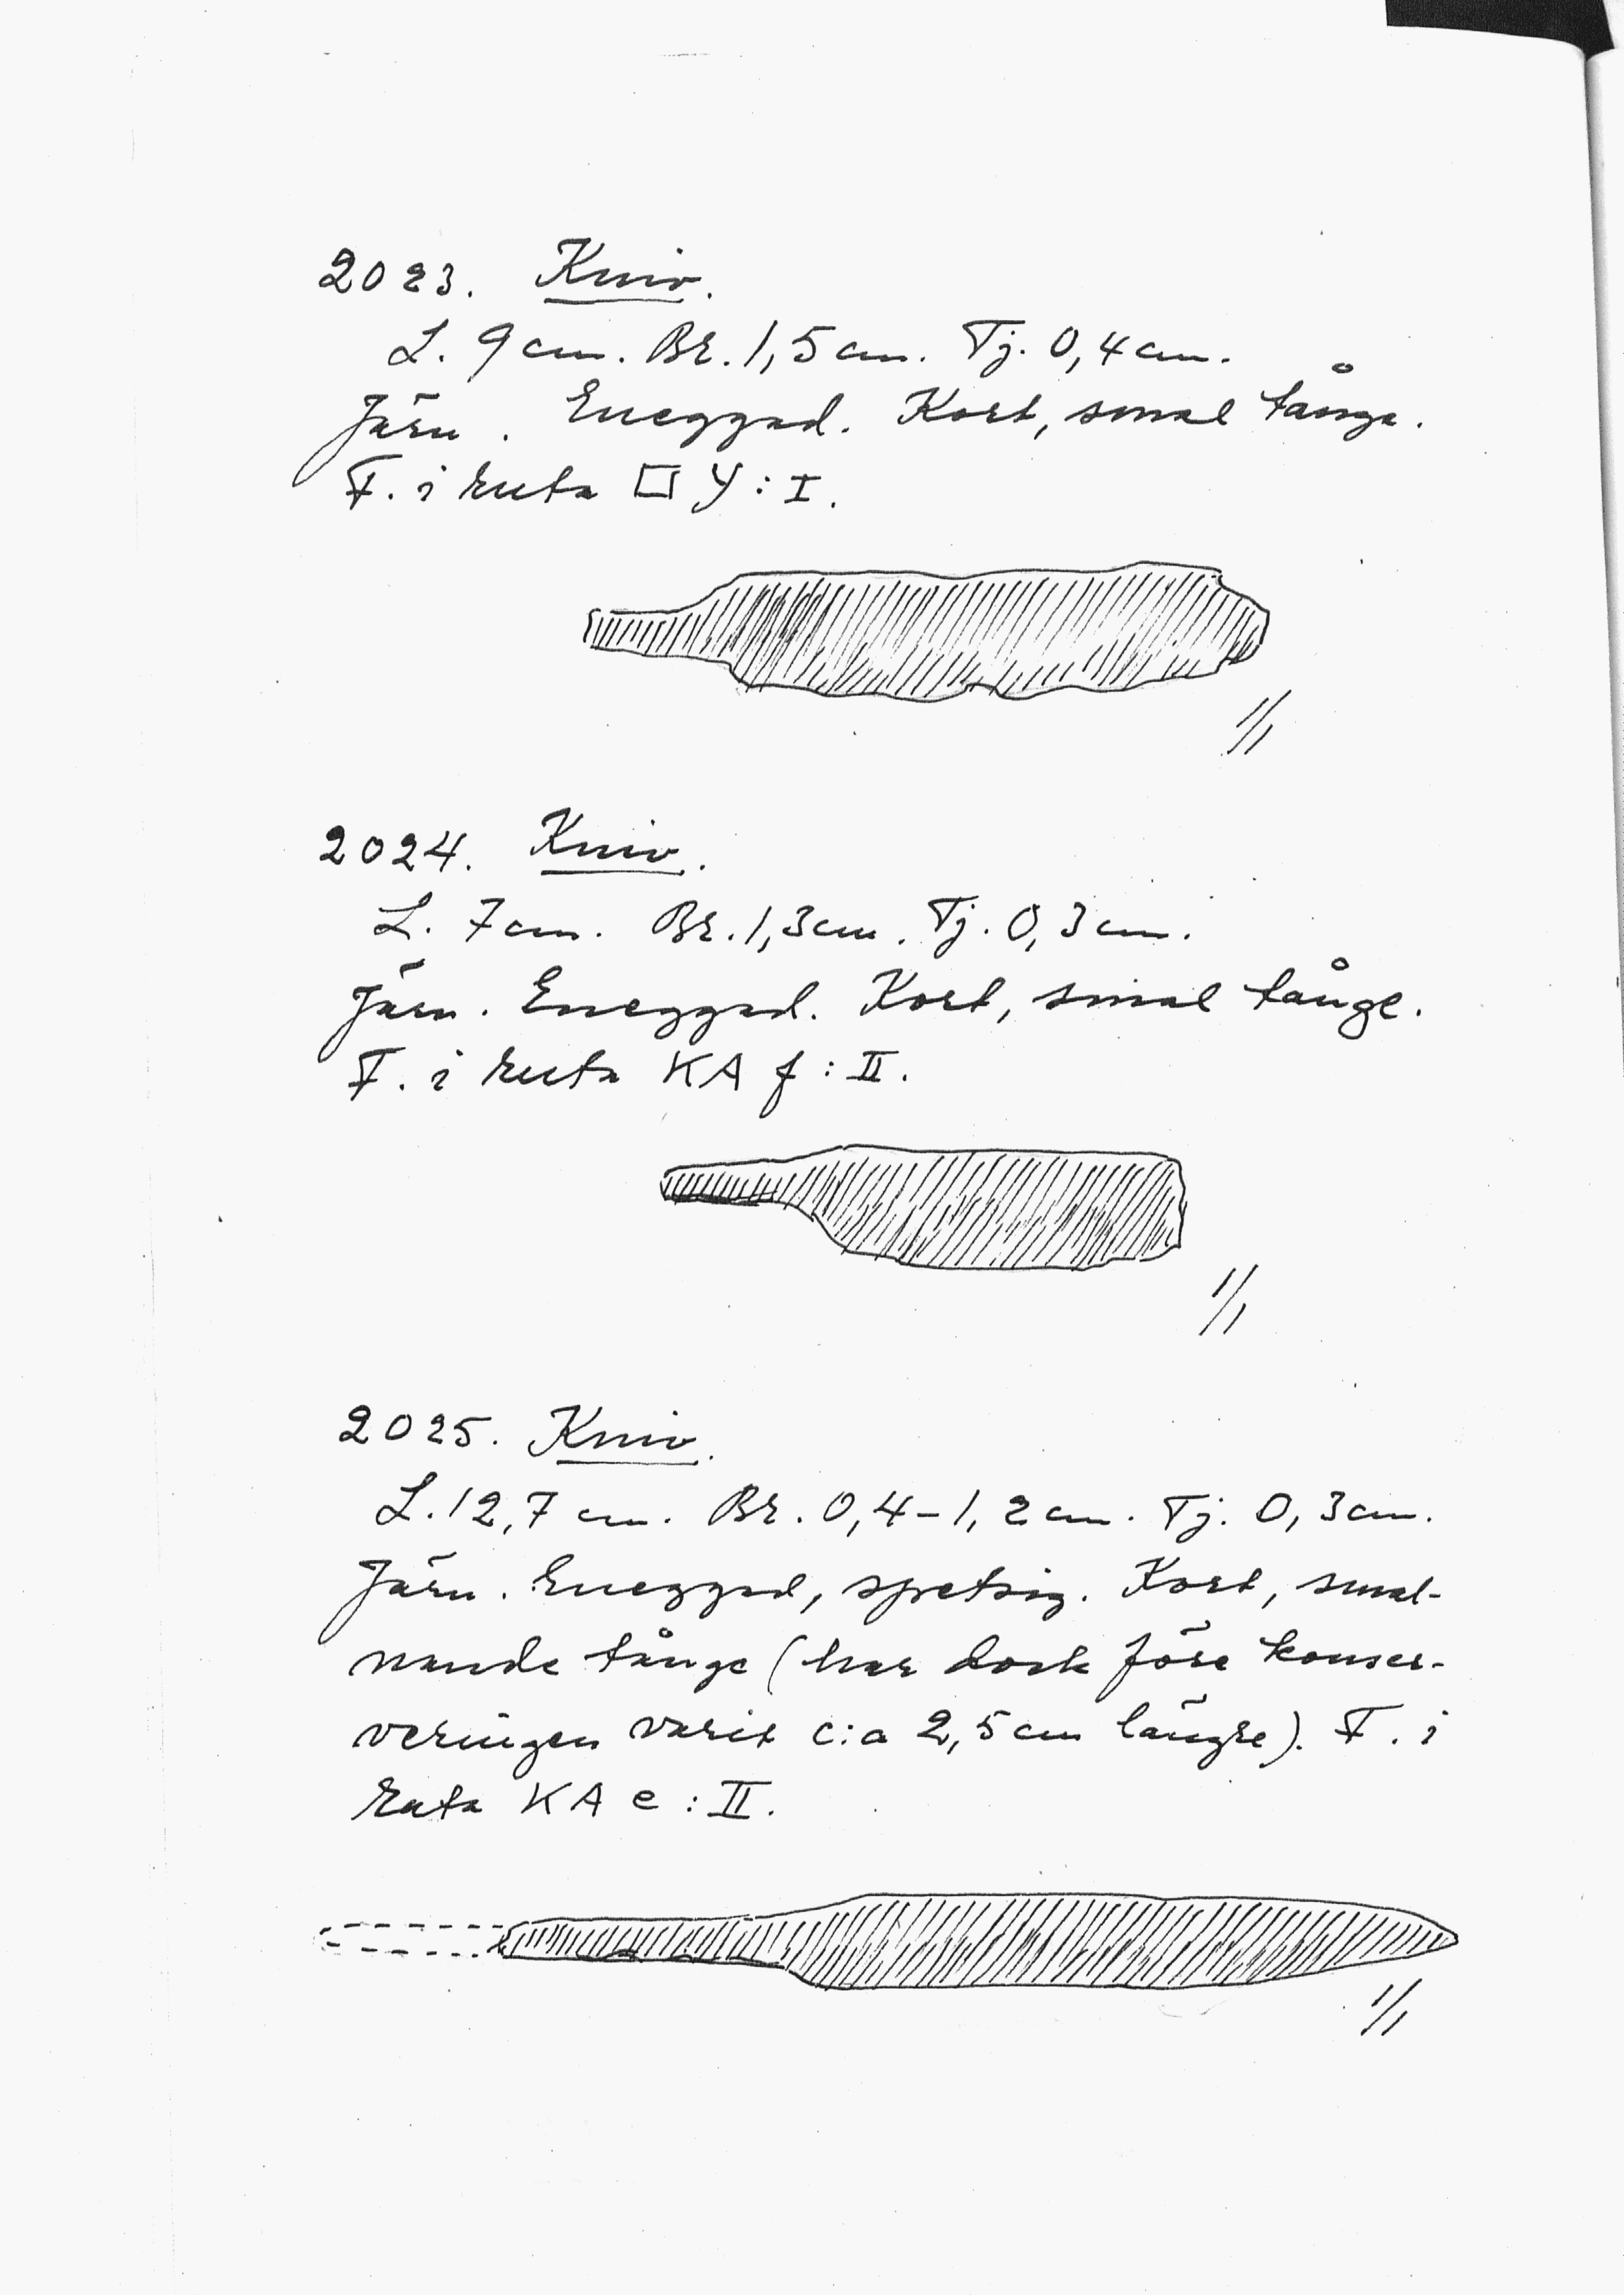 2023. Kniv.
L. 9 cm. Br. 1,5 cm. Tj. 0,4 cm.
Järn. Eneggad. Kort, smal tånge.
F. i ruta □ Y : I.
1/1
2024. Kniv.
L. 7 cm. Br. 1,3 cm. Tj. 0,3 cm.
Järn. Eneggad. Kort, smal tånge.
F. i ruta KA f : II.
1/1
2025. Kniv.
L. 12,7 cm. Br. 0,4-1,2 cm. Tj. 0,3 cm.
Järn. Eneggad, spetsig. Kort, smal-
nande tånge (har dock före konser-
veringen varit c:a 2,5 cm längre). F. i
ruta KA e : II.
1/1